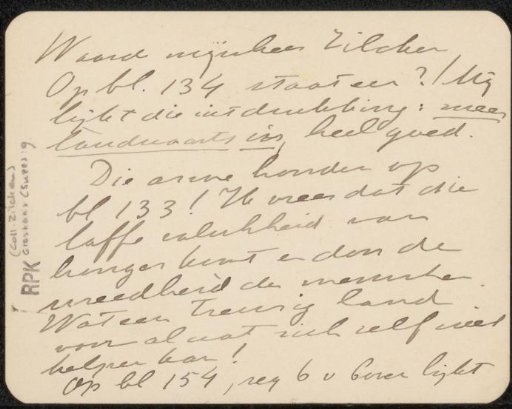 Waard mijnheer Zilcken
Op bl. 134 staat een ?! Mij
lijkt die uitdrukking: meer
landwaarts in, heel goed.
Die arme honden op
bl 133! Ik vrees dat die
laffe valschheid van
honger komt en door de
wreedheid der menschen.
Wat een treurig land
voor al wat zich zelf niet
helpen kan!
Op bl 154, reg 6 v boven lijkt
(Coll. Zilcken)
RPK